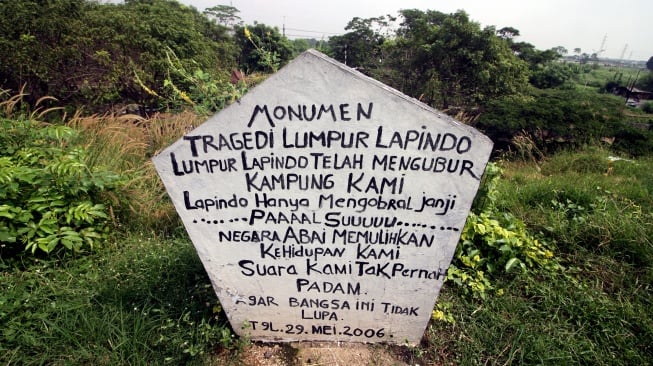 MONUMEN
TRAGEDI LUMPUR LAPINDO
LUMPUR LAPINDO TELAH MENGUBUR
KAMPUNG KAMI
LAPINDO HANYA MENGOBRAL JANJI
......PAAAAL SUUUUU........
NEGARA ABAI MEMULIHKAN
KEHIDUPAN KAMI
SUARA KAMI TAK PERNAH
PADAM.
AGAR BANGSA INI TIDAK
LUPA.
T9L. 29. MEI. 2006